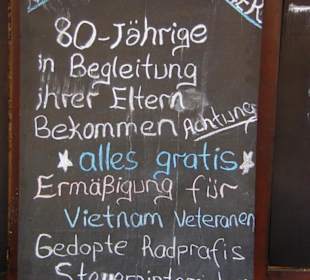 80-Jährige
in Begleitung
ihrer Eltern
Bekommen Achtung
alles gratis
Ermäßigung für
Vietnam Veteranen
Gedopte Radprafis